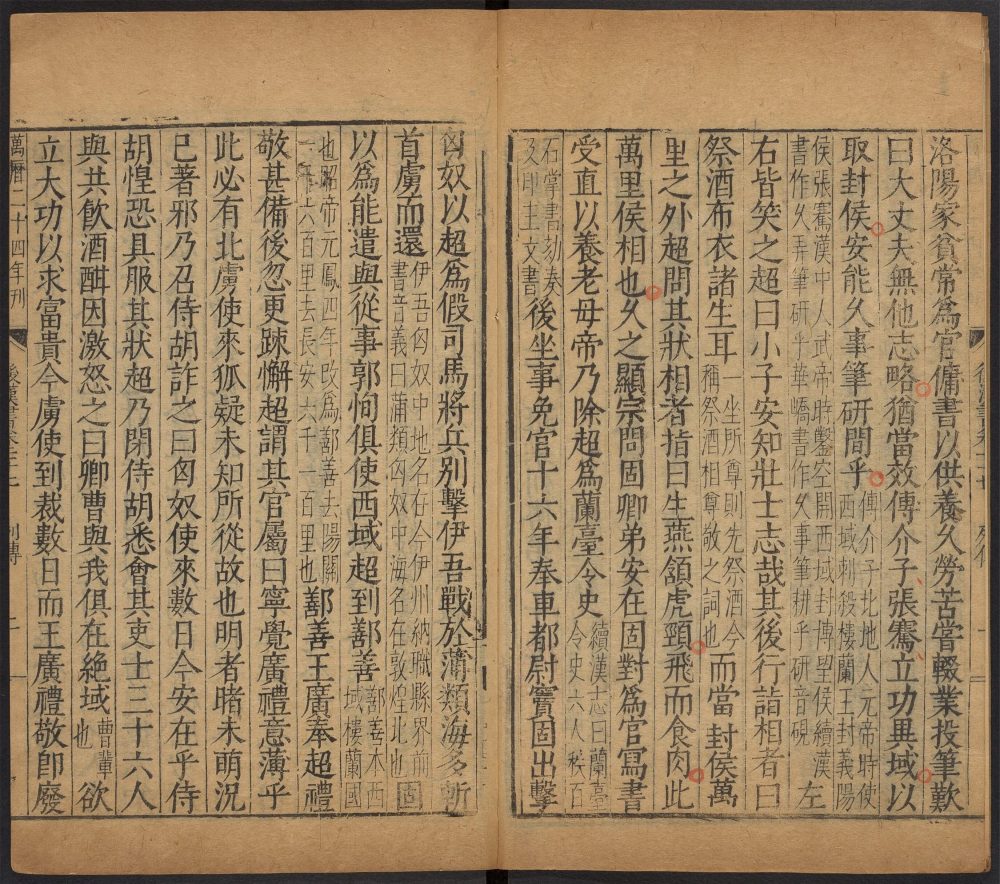 洛陽家貧常爲官傭書以供養久勞苦甞輟業投筆歎
曰大丈夫無他志略猶當效傅介子張騫立功異域以
取封侯安能久事筆研間乎傅介子北地人元帝時使西域刺殺樓蘭王封義陽
侯張騫漢中人武帝時鑿空開西域封博望侯續漢書作久弄筆研乎華嶠書作久事筆耕乎研音硯左
右皆笑之超曰小子安知壯士志哉其後行詣相者曰
祭酒布衣諸生耳一坐所尊則先祭酒今稱祭酒相尊敬之詞也而當封侯萬
里之外超問其狀相者指曰生燕頷虎頸飛而食肉此
萬里侯相也久之顯宗問固卿弟安在固對爲官寫書
受直以養老母帝乃除超爲蘭臺令史續漢志曰蘭臺令史六人秩百
石掌書刻奏及印主文書後坐事免官十六年奉車都尉竇固出擊
匈奴以超爲假司馬將兵別擊伊吾戰於蒲類海多斬
首虜而還伊吾匈奴中地名在今伊州納職縣界前書音義曰蒲類匈奴中海名在敦煌北也固
以爲能遣與從事郭恂俱使西域超到鄯善鄯善本西域樓蘭國
也昭帝元鳳四年改爲鄯善去陽關一千六百里去長安六千一百里也鄯善王廣奉超禮
敬甚備後忽更疎懈超謂其官屬曰寧覺廣禮意薄乎
此必有北虜使來狐疑未知所從故也明者睹未萌況
已著邪乃召侍胡詐之曰匈奴使來數日今安在乎侍
胡惶恐具服其狀超乃閉侍胡悉會其吏士三十六人
與共飲酒酣因激怒之曰卿曹與我俱在絶域曹輩也欲
立大功以求富貴今虜使到裁數日而王廣禮敬卽廢
萬曆二十四年刊
列傳
二